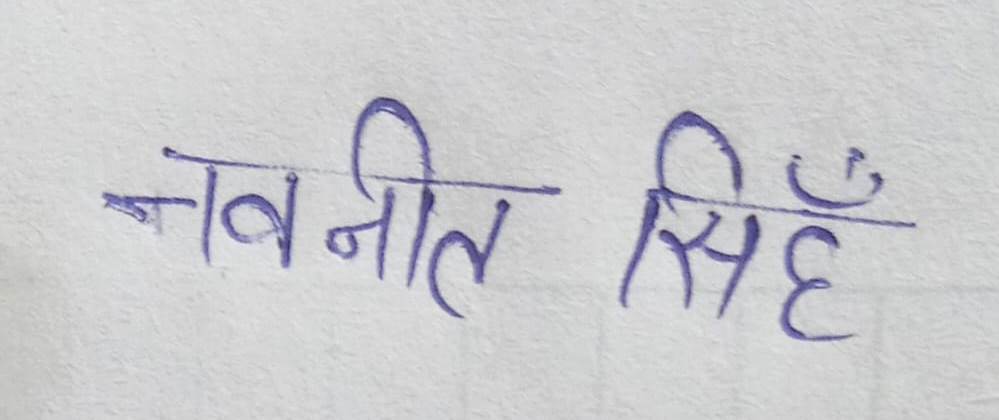 नवनीत सिहँ